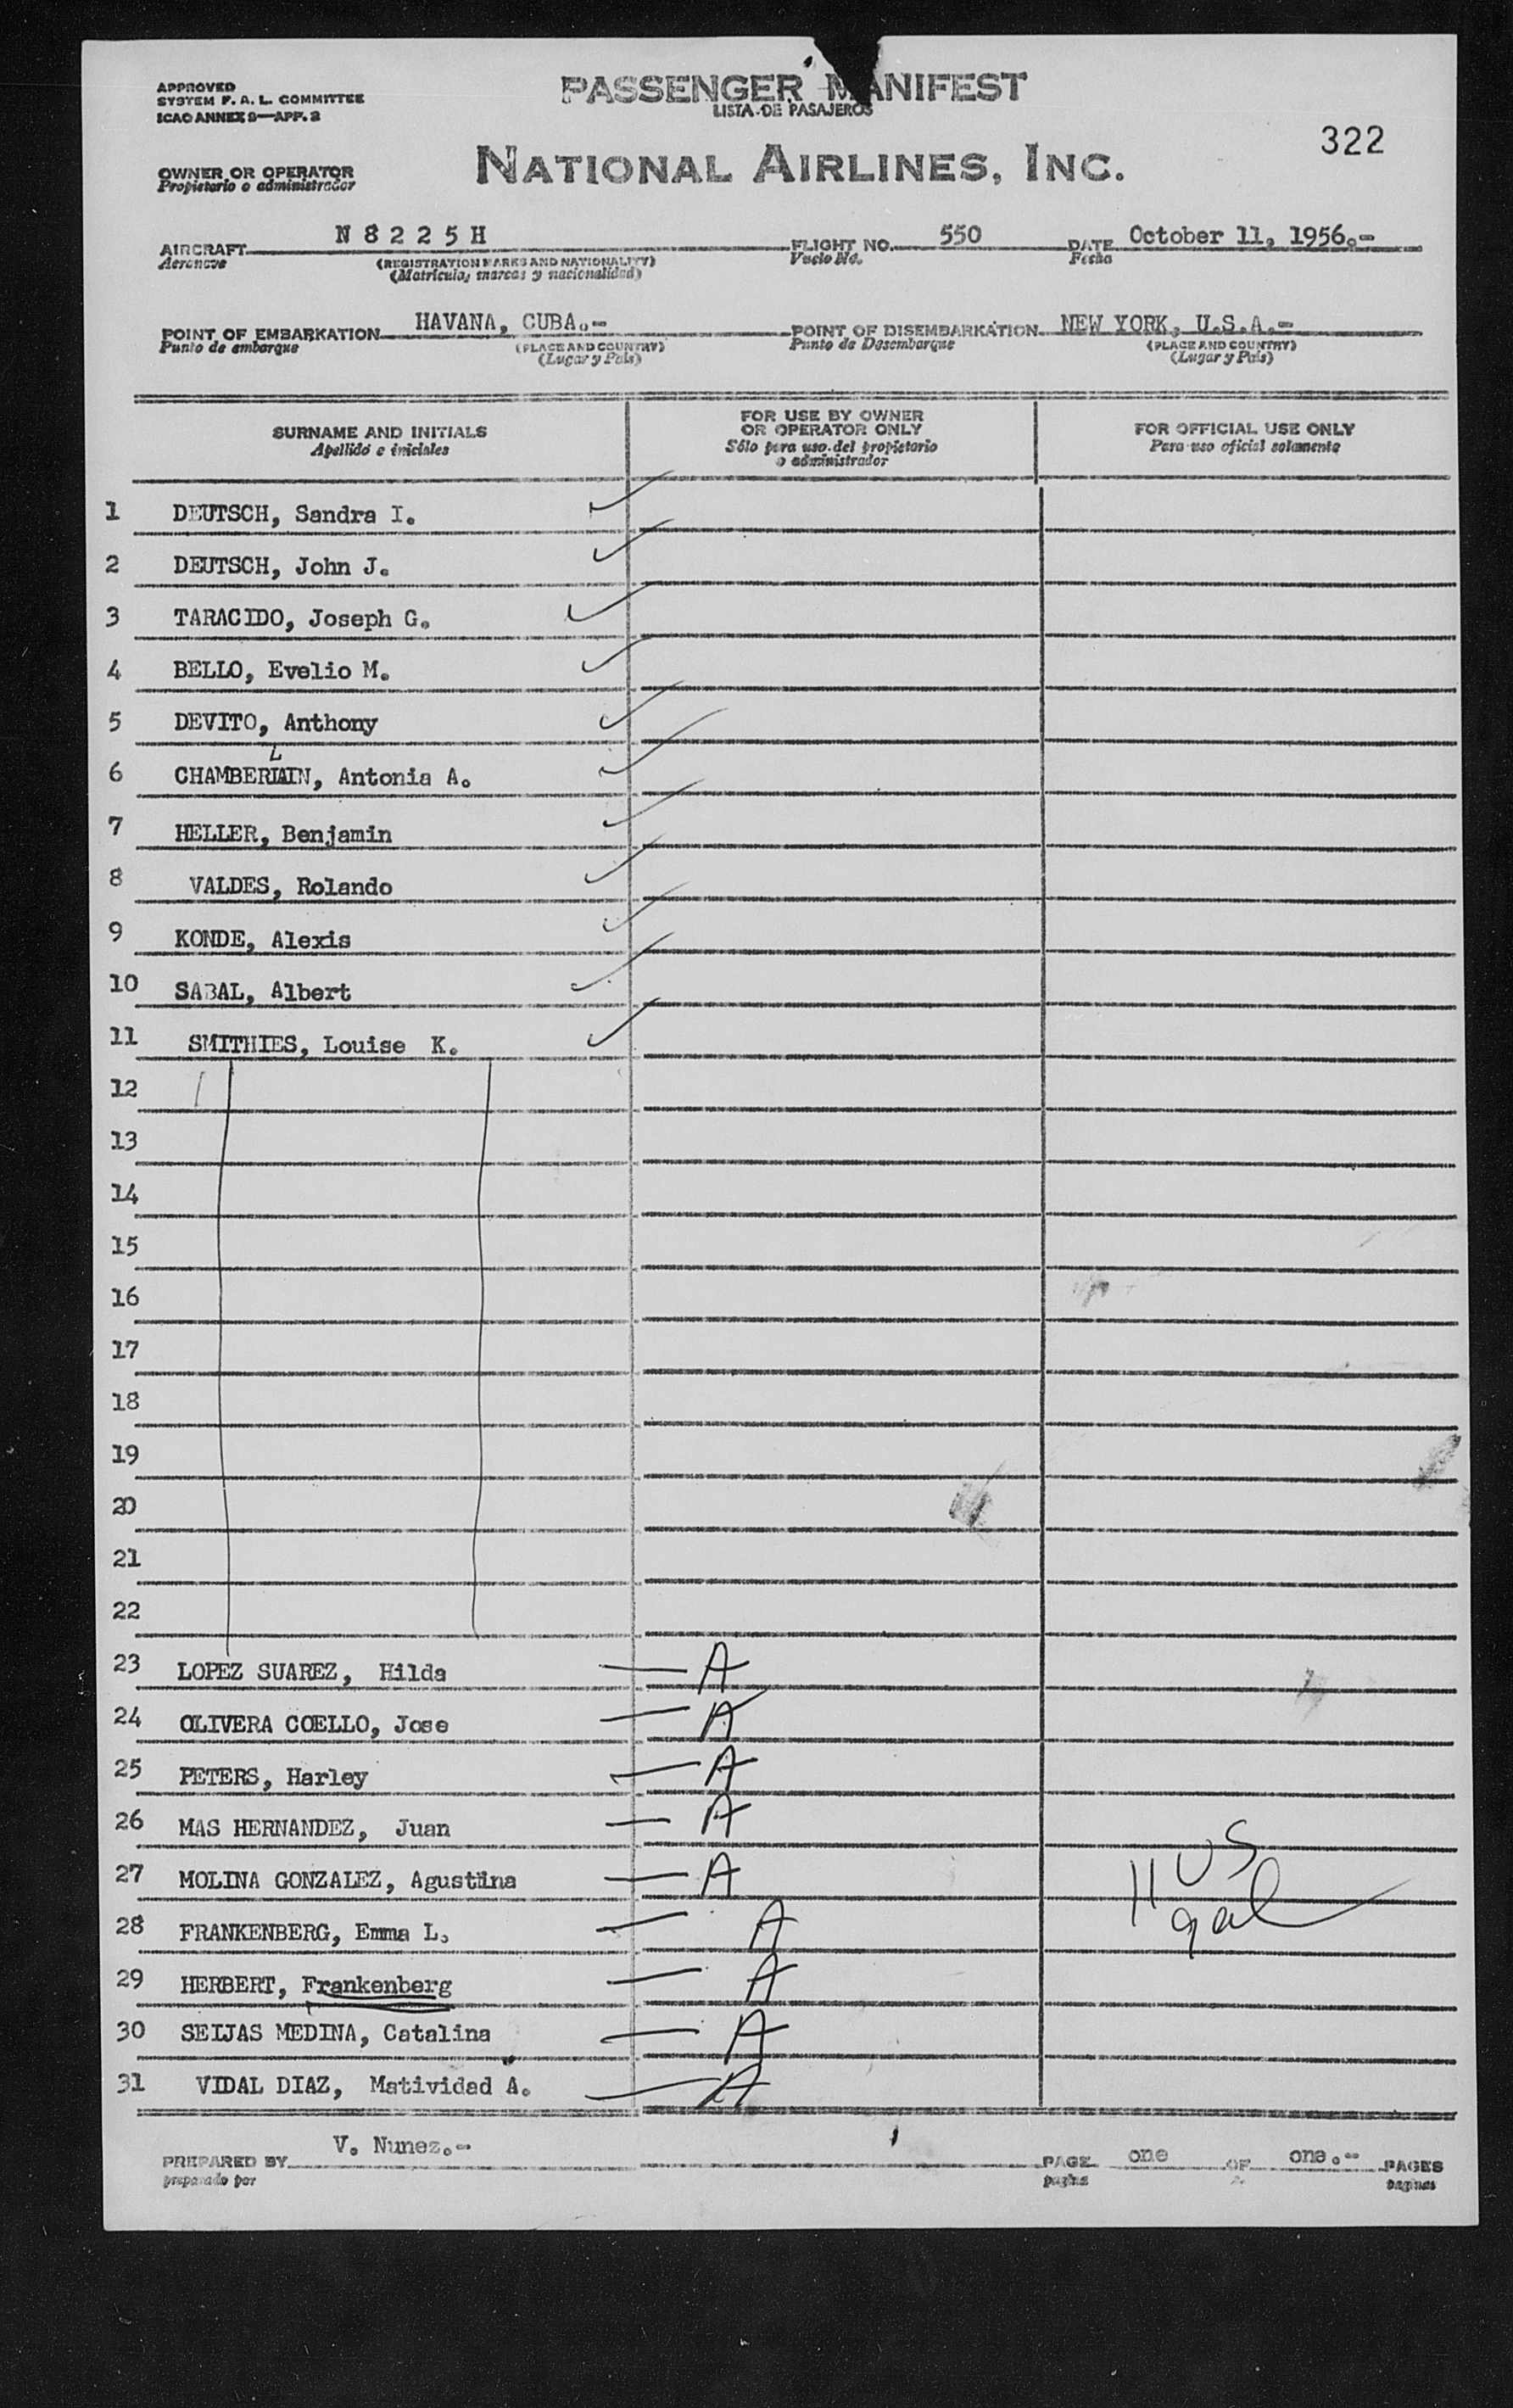 APPROVED
SYSTEM F. A. L. COMMITTEE
ICAO ANNEX 9—APP. 2
PASSENGER MANIFEST
LISTA DE PASAJEROS
322
OWNER OR OPERATOR
Propietario o administrador
NATIONAL AIRLINES, INC.
AIRCRAFT N 8 2 2 5 H FLIGHT NO. 550 DATE October 11, 1956.-
Aeronave (REGISTRATION MARKS AND NATIONALITY) Vuelo No. Fecha
(Matricula, marcas y nacionalidad)
POINT OF EMBARKATION HAVANA, CUBA.- POINT OF DISEMBARKATION NEW YORK, U.S.A.-
Punto de embarque (PLACE AND COUNTRY) Punto de Desembarque (PLACE AND COUNTRY)
(Lugar y Pais) (Lugar y Pais)
SURNAME AND INITIALS
Apellido e iniciales
FOR USE BY OWNER
OR OPERATOR ONLY
Sólo para uso del propietario
o administrador
FOR OFFICIAL USE ONLY
Para uso oficial solamente
1 DEUTSCH, Sandra I.
2 DEUTSCH, John J.
3 TARACIDO, Joseph G.
4 BELLO, Evelio M.
5 DEVITO, Anthony
L
6 CHAMBERIAIN, Antonia A.
7 HELLER, Benjamin
8 VALDES, Rolando
9 KONDE, Alexis
10 SABAL, Albert
11 SMITHIES, Louise K.
12
13
14
15
16
17
18
19
20
21
22
23 LOPEZ SUAREZ, Hilda A
24 OLIVERA COELLO, Jose A
25 PETERS, Harley A
26 MAS HERNANDEZ, Juan A
27 MOLINA GONZALEZ, Agustina A
11 US
9 al
28 FRANKENBERG, Emma L. A
29 HERBERT, Frankenberg A
30 SEIJAS MEDINA, Catalina A
31 VIDAL DIAZ, Matividad A. A
PREPARED BY V. Nunez.- PAGE one OF one.- PAGES
preparado por pagina paginas